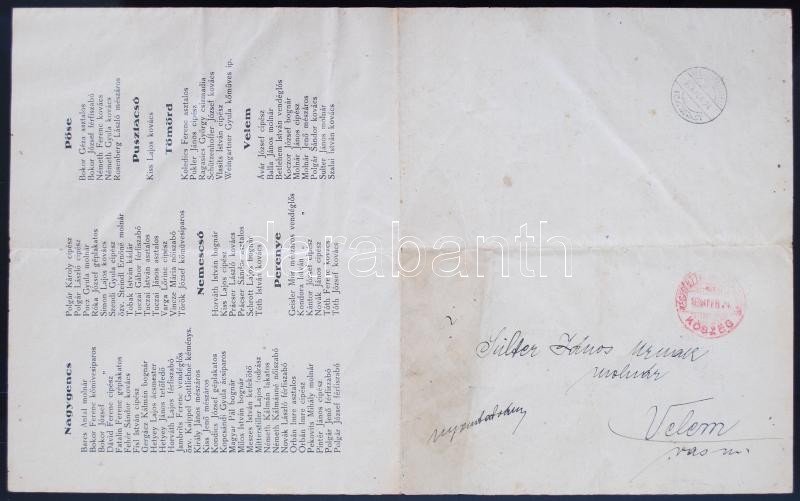 Nagygencs
Barcs Antal molnár
Bokor Ferenc kőmívesiparos
Bokor József „
Dávid Ferenc cipész
Fatalin Ferenc géplakatos
Fehér Sándor kovács
Fixl István cipész
Gergácz Kálmán bognár
Hetyey Lajos ácsmester
Hetyey János tetőfedő
Horváth Lajos férfiszabó
Jambrits Ferenc vendéglős
özv. Kaippel Gottliebné kéménys.
Király János mészáros
Kiss Jenő mészáros
Kondics József géplakatos
Kopcsándi Gyula ácsiparos
Magyar Pál bognár
Milos István bognár
Meszes István kefekötő
Mitterstiller Lajos fodrász
Németh Kálmán lakatos
Németh Kálmánné nőiszabó
Novák László férfiszabó
Orbán Imre asztalos
Orbán Imre cipész
Pekovits Mihály molnár
Pintér János cipész
Polgár Jenő férfiszabó
Polgár József férfiszabó
Polgár Károly cipész
Polgár László cipész
Pucz Gyula molnár
Róka József géplakatos
Simon Lajos kovács
Szendi Gyula cipész
özv. Steindl Ernőné molnár
Tobak István kádár
Tuczai Gábor férfiszabó
Tuczai István asztalos
Tuczai János asztalos
Varga Lőrinc cipész
Vincze Mária nőiszabó
Török József kőmívesiparos
Nemescsó
Horváth István bognár
Kiss Lajos cipész
Prácser László kovács
Prácser Sándor asztalos
Schrott Lajos bognár
Tóth István kovács
Perenye
Geisler Mór mészáros vendéglős
Kondora István „ „
Kántor József cipész
Novák János cipész
Tóth Ferenc kovács
Tóth József kovács
Pöse
Bokor Géza asztalos
Bokor József férfiszabó
Németh Ferenc kovács
Németh Gyula kovács
Rosenberg László mészáros
Pusztacsó
Kiss Lajos kovács
Tömörd
Koledics Ferenc asztalos
Pukler János cipész
Ragasics György csizmadia
Schützenhofler József kovács
Vlasits István cipész
Weingartner Gyula kőműves ip.
Velem
Avár József cipész
Balla János molnár
Betlehem István vendéglős
Koczor József bognár
Molnár János cipész
Molnár Jenő mészáros
Polgár Sándor kovács
Sulter János molnár
Szalai István kovács
KŐSZEG
Sulter János
molnár
nyomtatvány
Velem
Vas m.
darabanth